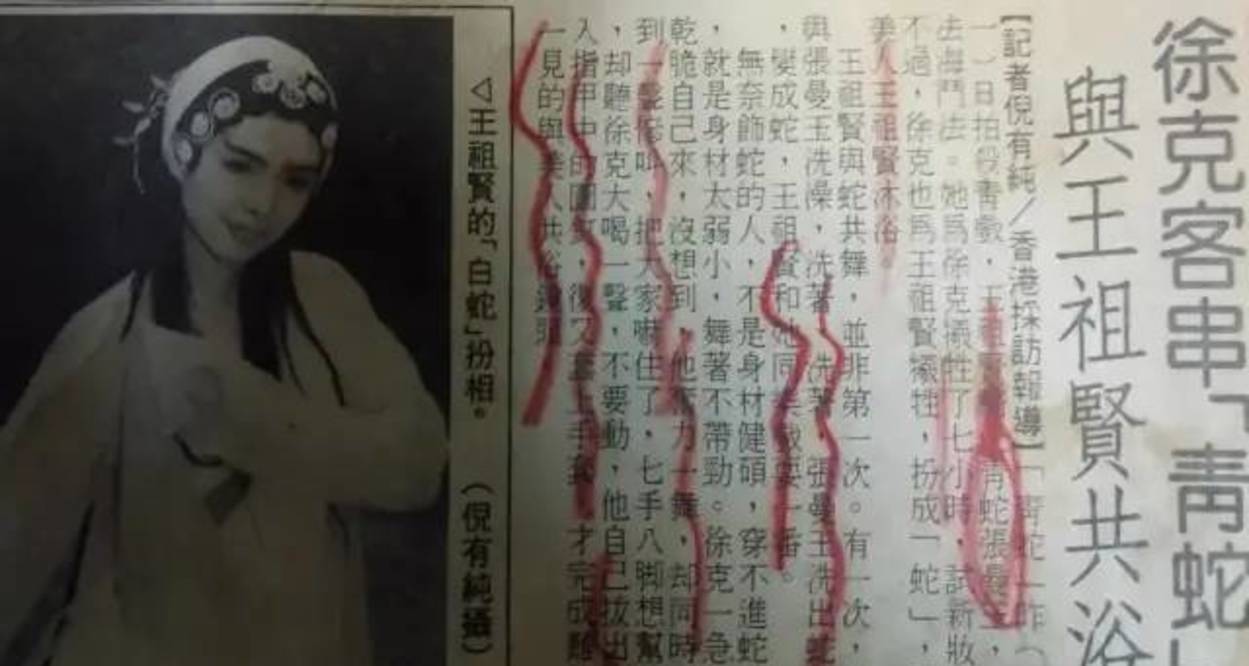 徐克客串「青蛇」
與王祖賢共浴
【記者倪有純／香港採訪報導】「青蛇」昨（
一）日拍殺青戲，王祖賢、青蛇張曼玉，
去海門法。她為徐克犧牲了七小時，試新妝
不過，徐克也為王祖賢犧牲，扮成「蛇」，
美人王祖賢沐浴。
王祖賢與蛇共舞，並非第一次。有一次，
與張曼玉洗澡，洗著、洗著，張曼玉洗出蛇
，變成蛇，王祖賢和她同
無奈飾蛇的人，不是身材健碩，穿不進蛇
，就是身材太弱小，舞著不帶勁。徐克一急
乾脆自己來，沒想到，他奮力一舞，却同時
到一聲慘叫，把大家嚇住了，七手八脚想幫
，却聽徐克大喝一聲，不要動，他自己拔出
入指甲中的圖釘，復又套上手套，才完成難
一見的與美人共浴鏡頭。
◁王祖賢的「白蛇」扮相。
（倪有純攝）